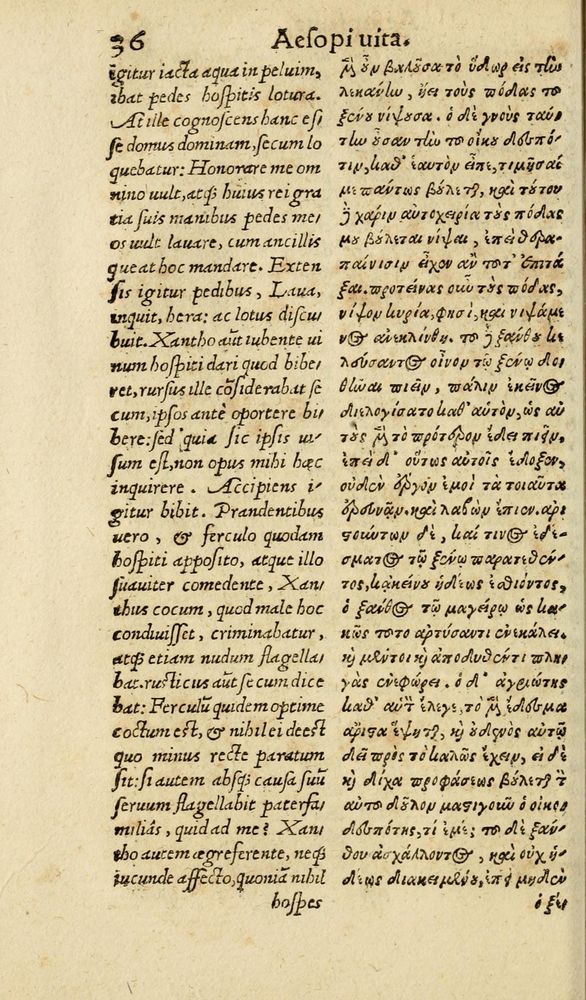 36 Aesopi uita.
igitur iacta aqua in peluim,
ibat pedes hospitis lotura.
At ille cognoscens hanc esse
se domus dominam, secum lo
quebatur: Honorare me om
nino uult, atq; huius rei gra
tia suis manibus pedes me/
os uult lauare, cum ancillis
queat hoc mandare. Exten
sis igitur pedibus, Laua,
inquit, hera: ac lotus discu
buit. Xantho aūt iubente ui
num hospiti dari quod bibe
ret, rursus ille cōsiderabat se
cum, ipsos antè oportere bi
bere: sed quia sic ipsis ui/
sum est, non opus mihi haec
inquirere. Accipiens i/
gitur bibit. Prandentibus
uero, & ferculo quodam
hospiti apposito, atque illo
suauiter comedente, Xan/
thus cocum, quod male hoc
condiuisset, criminabatur,
atq; etiam nudum flagella/
bat. rusticus aūt secum dice
bat: Ferculū quidem optime
coctum est, & nihil ei deest
quo minus recte paratum
sit: si autem absq; causa suū
seruum flagellabit paterfa/
miliâs, quid ad me? Xan/
tho autem aegre ferente, neq;
iucunde affecto, quoniā nihil
hospes
μ̃ οὖν βαλοῦσα τὸ ὕδωρ εἰς τὼ
λεκάνλω, ᾔει τοὺς πόδας τοῦ
ξένου νίψουσα. ὁ δὲ γνοὺς ταύ
τλω οὖσαν τλὼ τοῦ οἴκου δεσπό/
τιν, καθ' ἑαυτὸν εἶπε, τιμῆσαί
με πάντως βούλετ, καὶ τούτου
χάριν αὐτοχειρία τοὺς πόδας
μου βούλεται νίψαι, ἐπεὶ θερα/
παίνισιν εἶχον ἂν τοῦτ' ἐπιτά
ξαι. προτείνας οὖν τοὺς πόδας,
νίψον κυρία, φησὶ, καὶ νιψάμε/
νος ἀνεκλίνθη. τοῦ ξάνθου κε
λεύσαντος οἶνον τῷ ξένῳ δο/
θῆναι πιεῖν, πάλιν ἐκεῖνος
διελογίσατο καθ' αὑτὸν, ὡς αὐ
τοὺς μ̃ τὸ πρότερον ἔδει πιεῖν,
ἐπεὶ δ' οὕτως αὐτοῖς ἔδοξεν,
οὐδὲν ἔργον ἐμοὶ τὰ τοιαῦτα
ἐρευνᾶν. καὶ λαβὼν ἔπιον. ἀρι
στούντων δὲ, καί τινος ἐδέ/
σματος τῷ ξένῳ παρατεθέν/
τος, κἀκείνου ἡδέως ἐσθίοντος,
ὁ ξάνθος τῷ μαγείρῳ ὡς κα/
κῶς τοῦτο ἀρτύσαντι ἐνεκάλει.
καὶ μέντοι καὶ ἀποδυθέντι πλη/
γὰς ἐνεφόρει. ὁ δ' ἀγριώτης
καθ' αὑτ ἔλεγε, τὸ μ̃ ἔδεσμα
ἄριστα ἕψητ, καὶ οὐδενὸς αὐτῷ
δεῖ πρὸς τὸ καλῶς ἔχειν, εἰ δὲ
καὶ δίχα προφάσεως βούλετ τ
αὐτοῦ δοῦλον μαστιγοῦν ὁ οἰκο/
δεσπότης, τί ἐμές; τοῦ δὲ ξάν/
θου ἀσχάλλοντος, καὶ οὐχ ἡ/
δέως διακειμένου, ἐπ μηδὲν
ὁ ξέ/